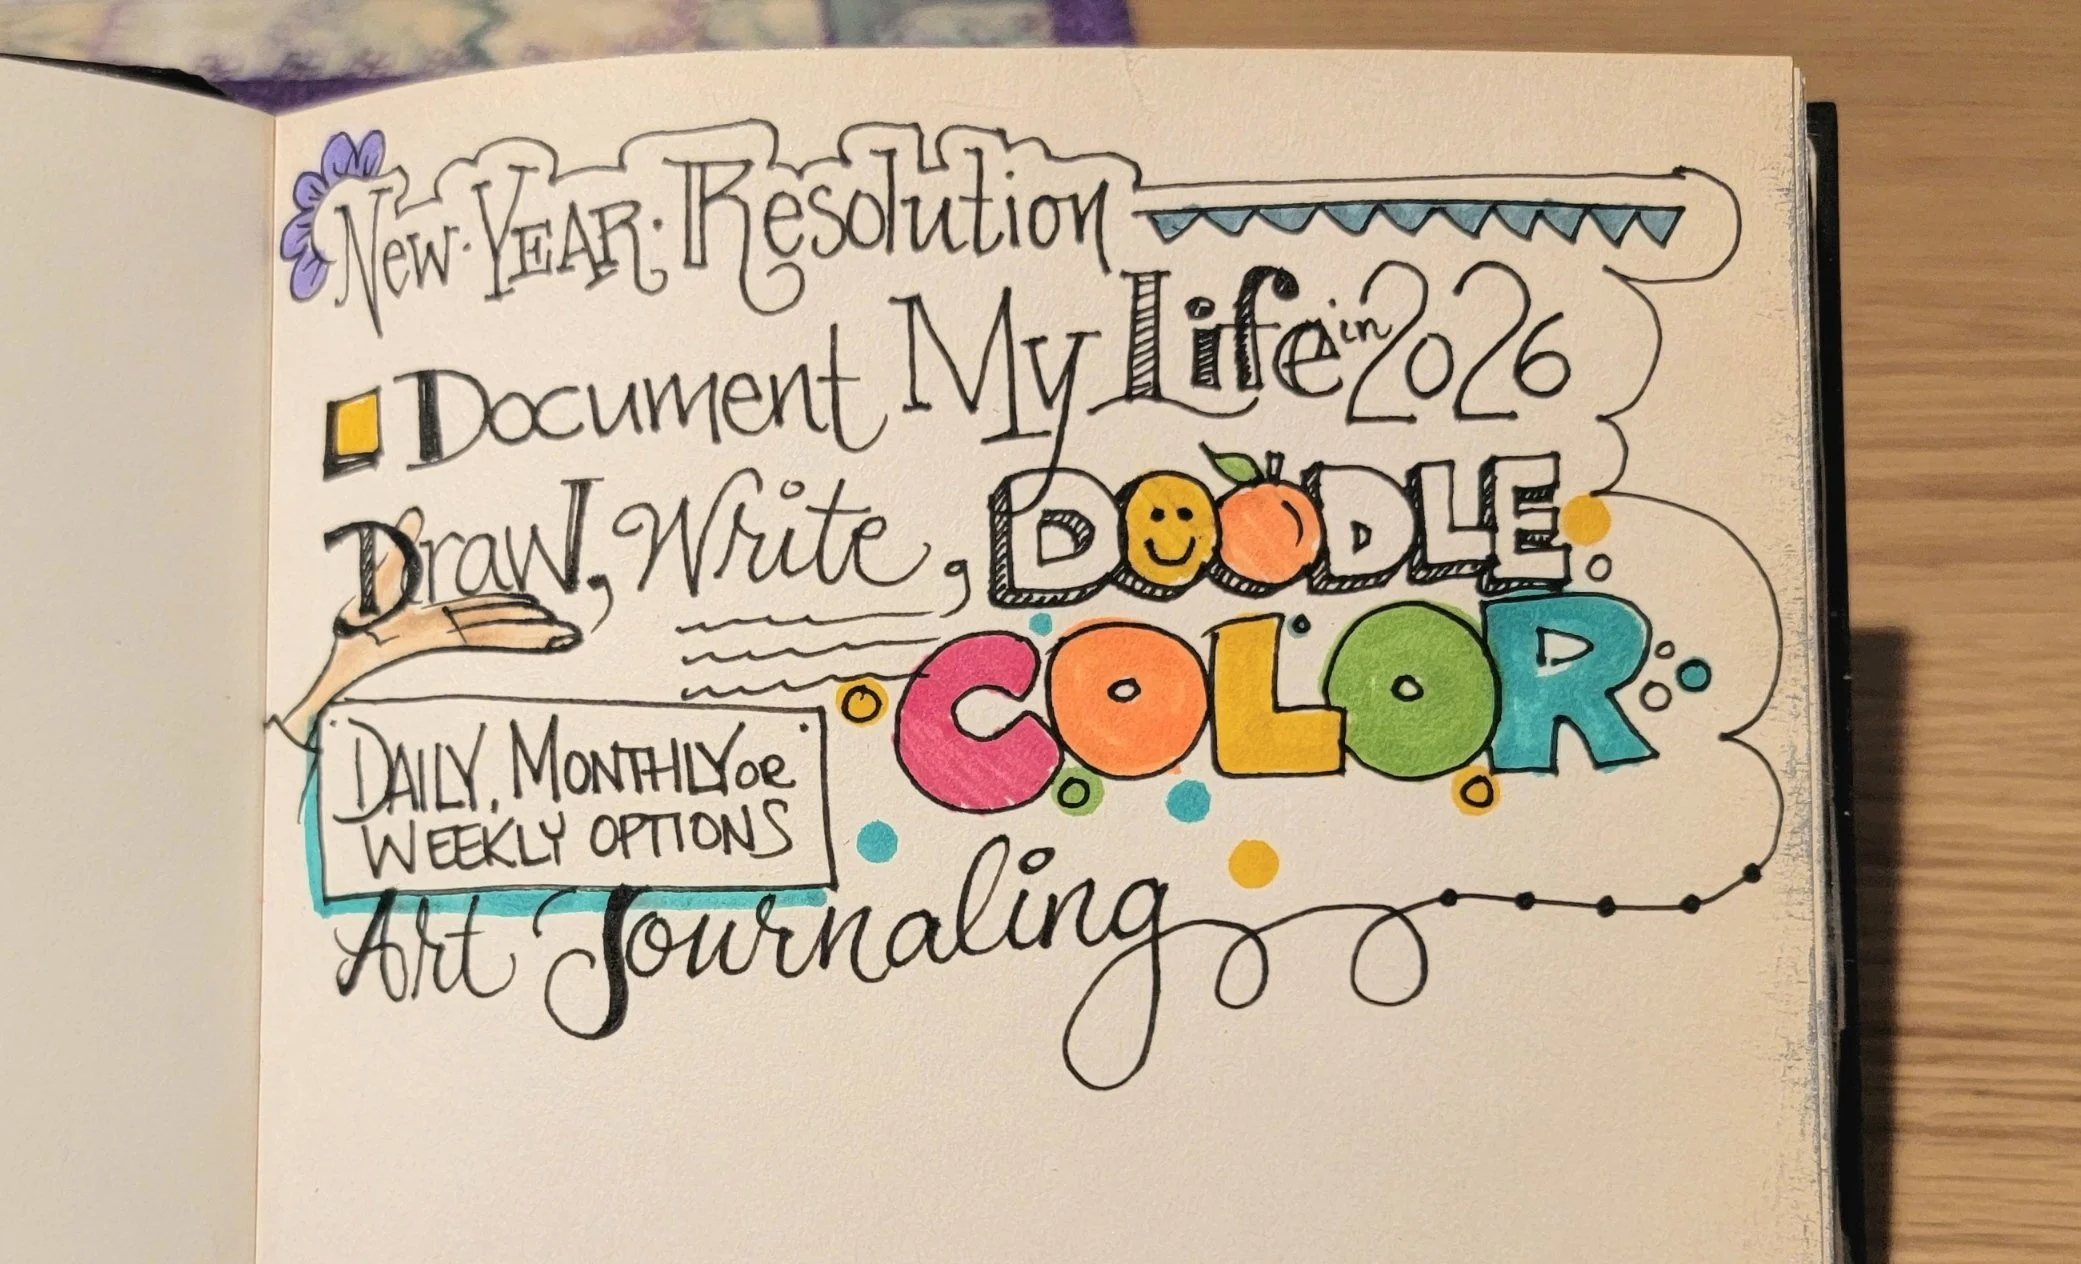 New · Year · Resolution
Document My Life in 2026
Draw, Write, DOODLE
COLOR
DAILY, MONTHLY OR
WEEKLY OPTIONS
Art Journaling